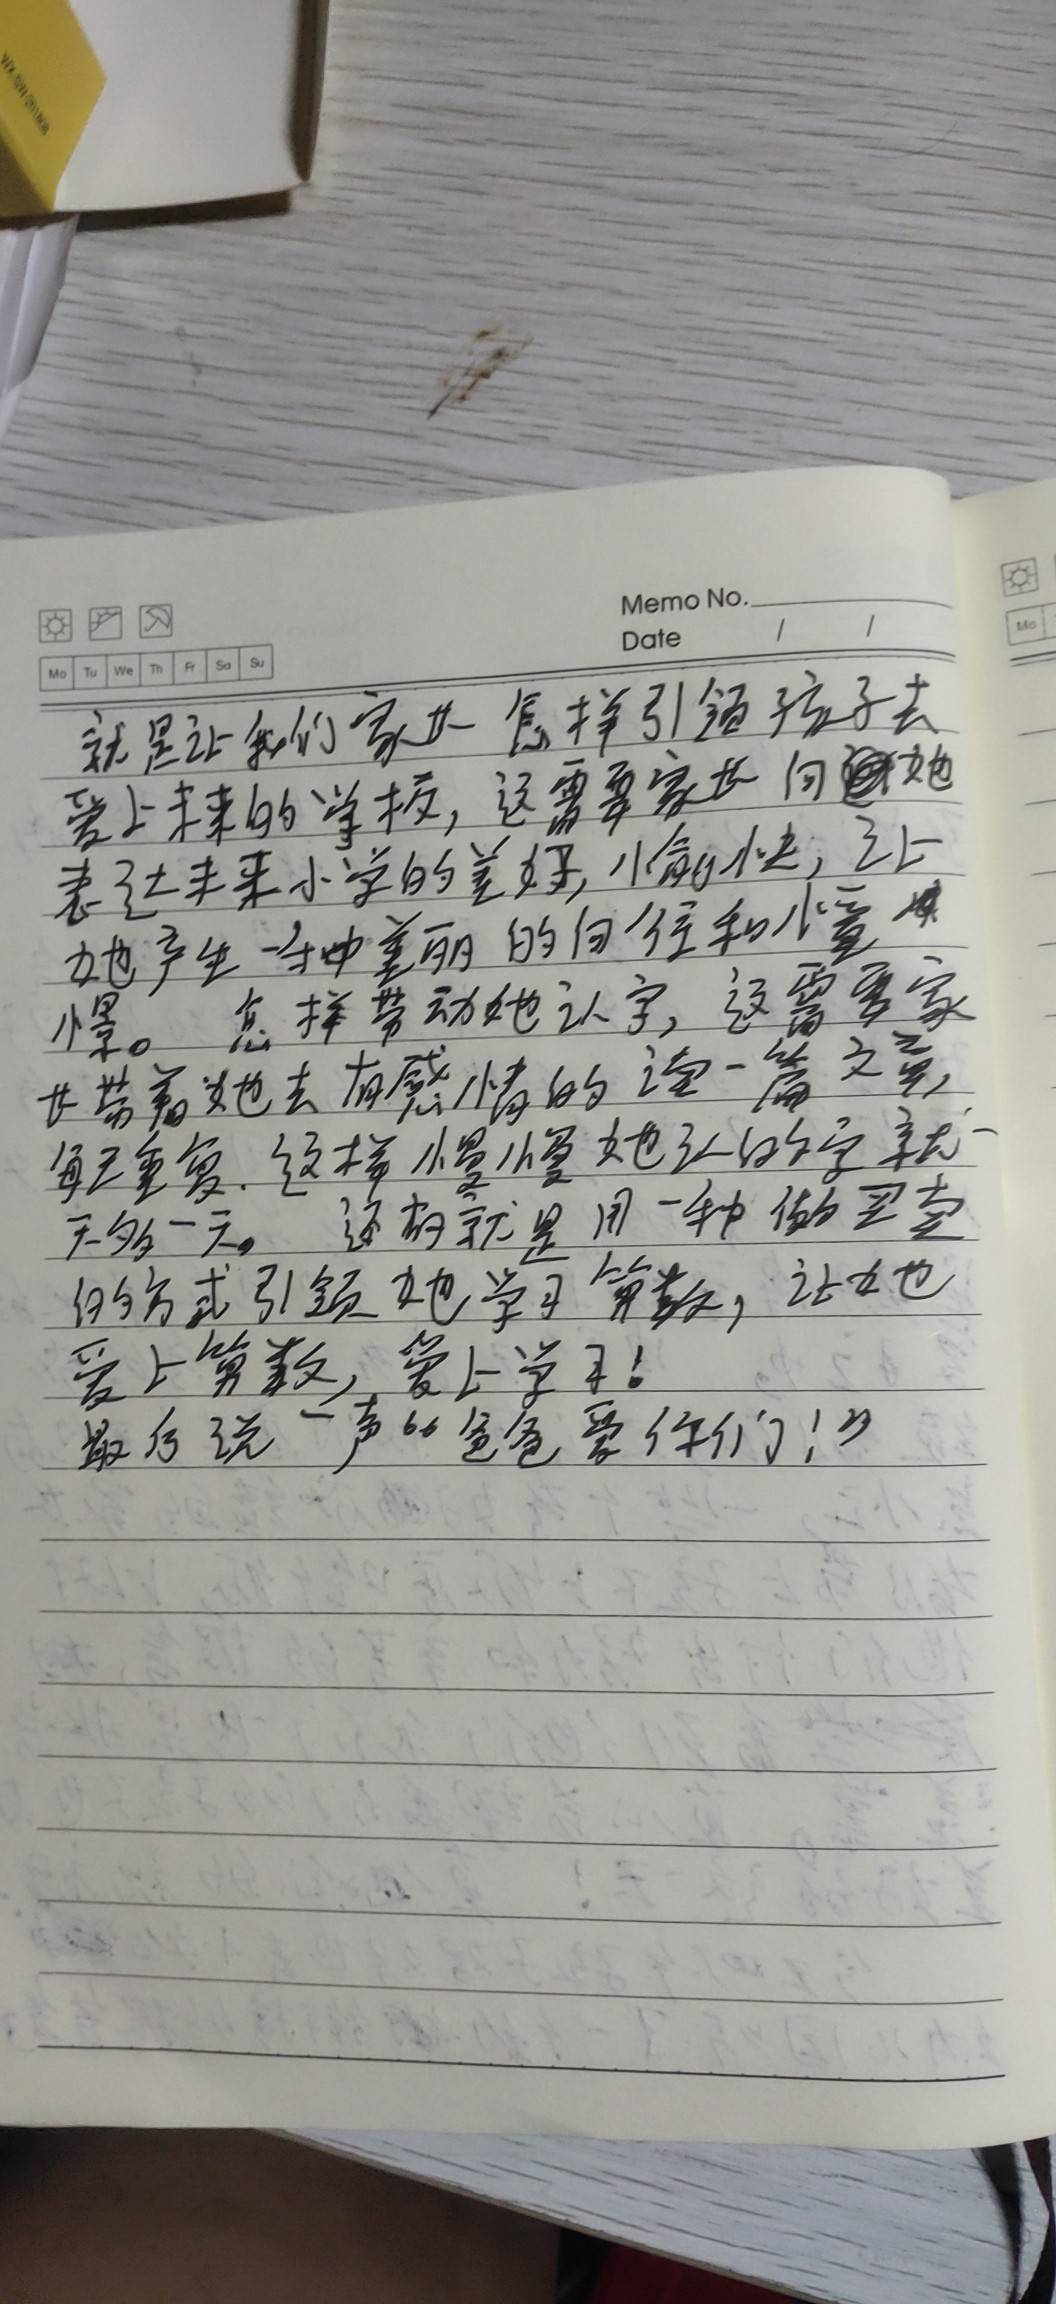 Memo No.
Date / /
Mo Tu We Th Fr Sa Su
Mo
就是让我们家长 怎样引领孩子去
爱上未来的学校，这需要家长向她
表达未来小学的美好，愉快，让
她产生一种美丽的向往和憧
憬。 怎样带动她认字，这需要家
长带着她去有感情的读一篇文章，
每天重复．这样慢慢她认的字就一
天多一天。 还有就是用一种做买卖
的方式引领她学习算数，让她
爱上算数，爱上学习！
最后说一声“爸爸爱你们！”